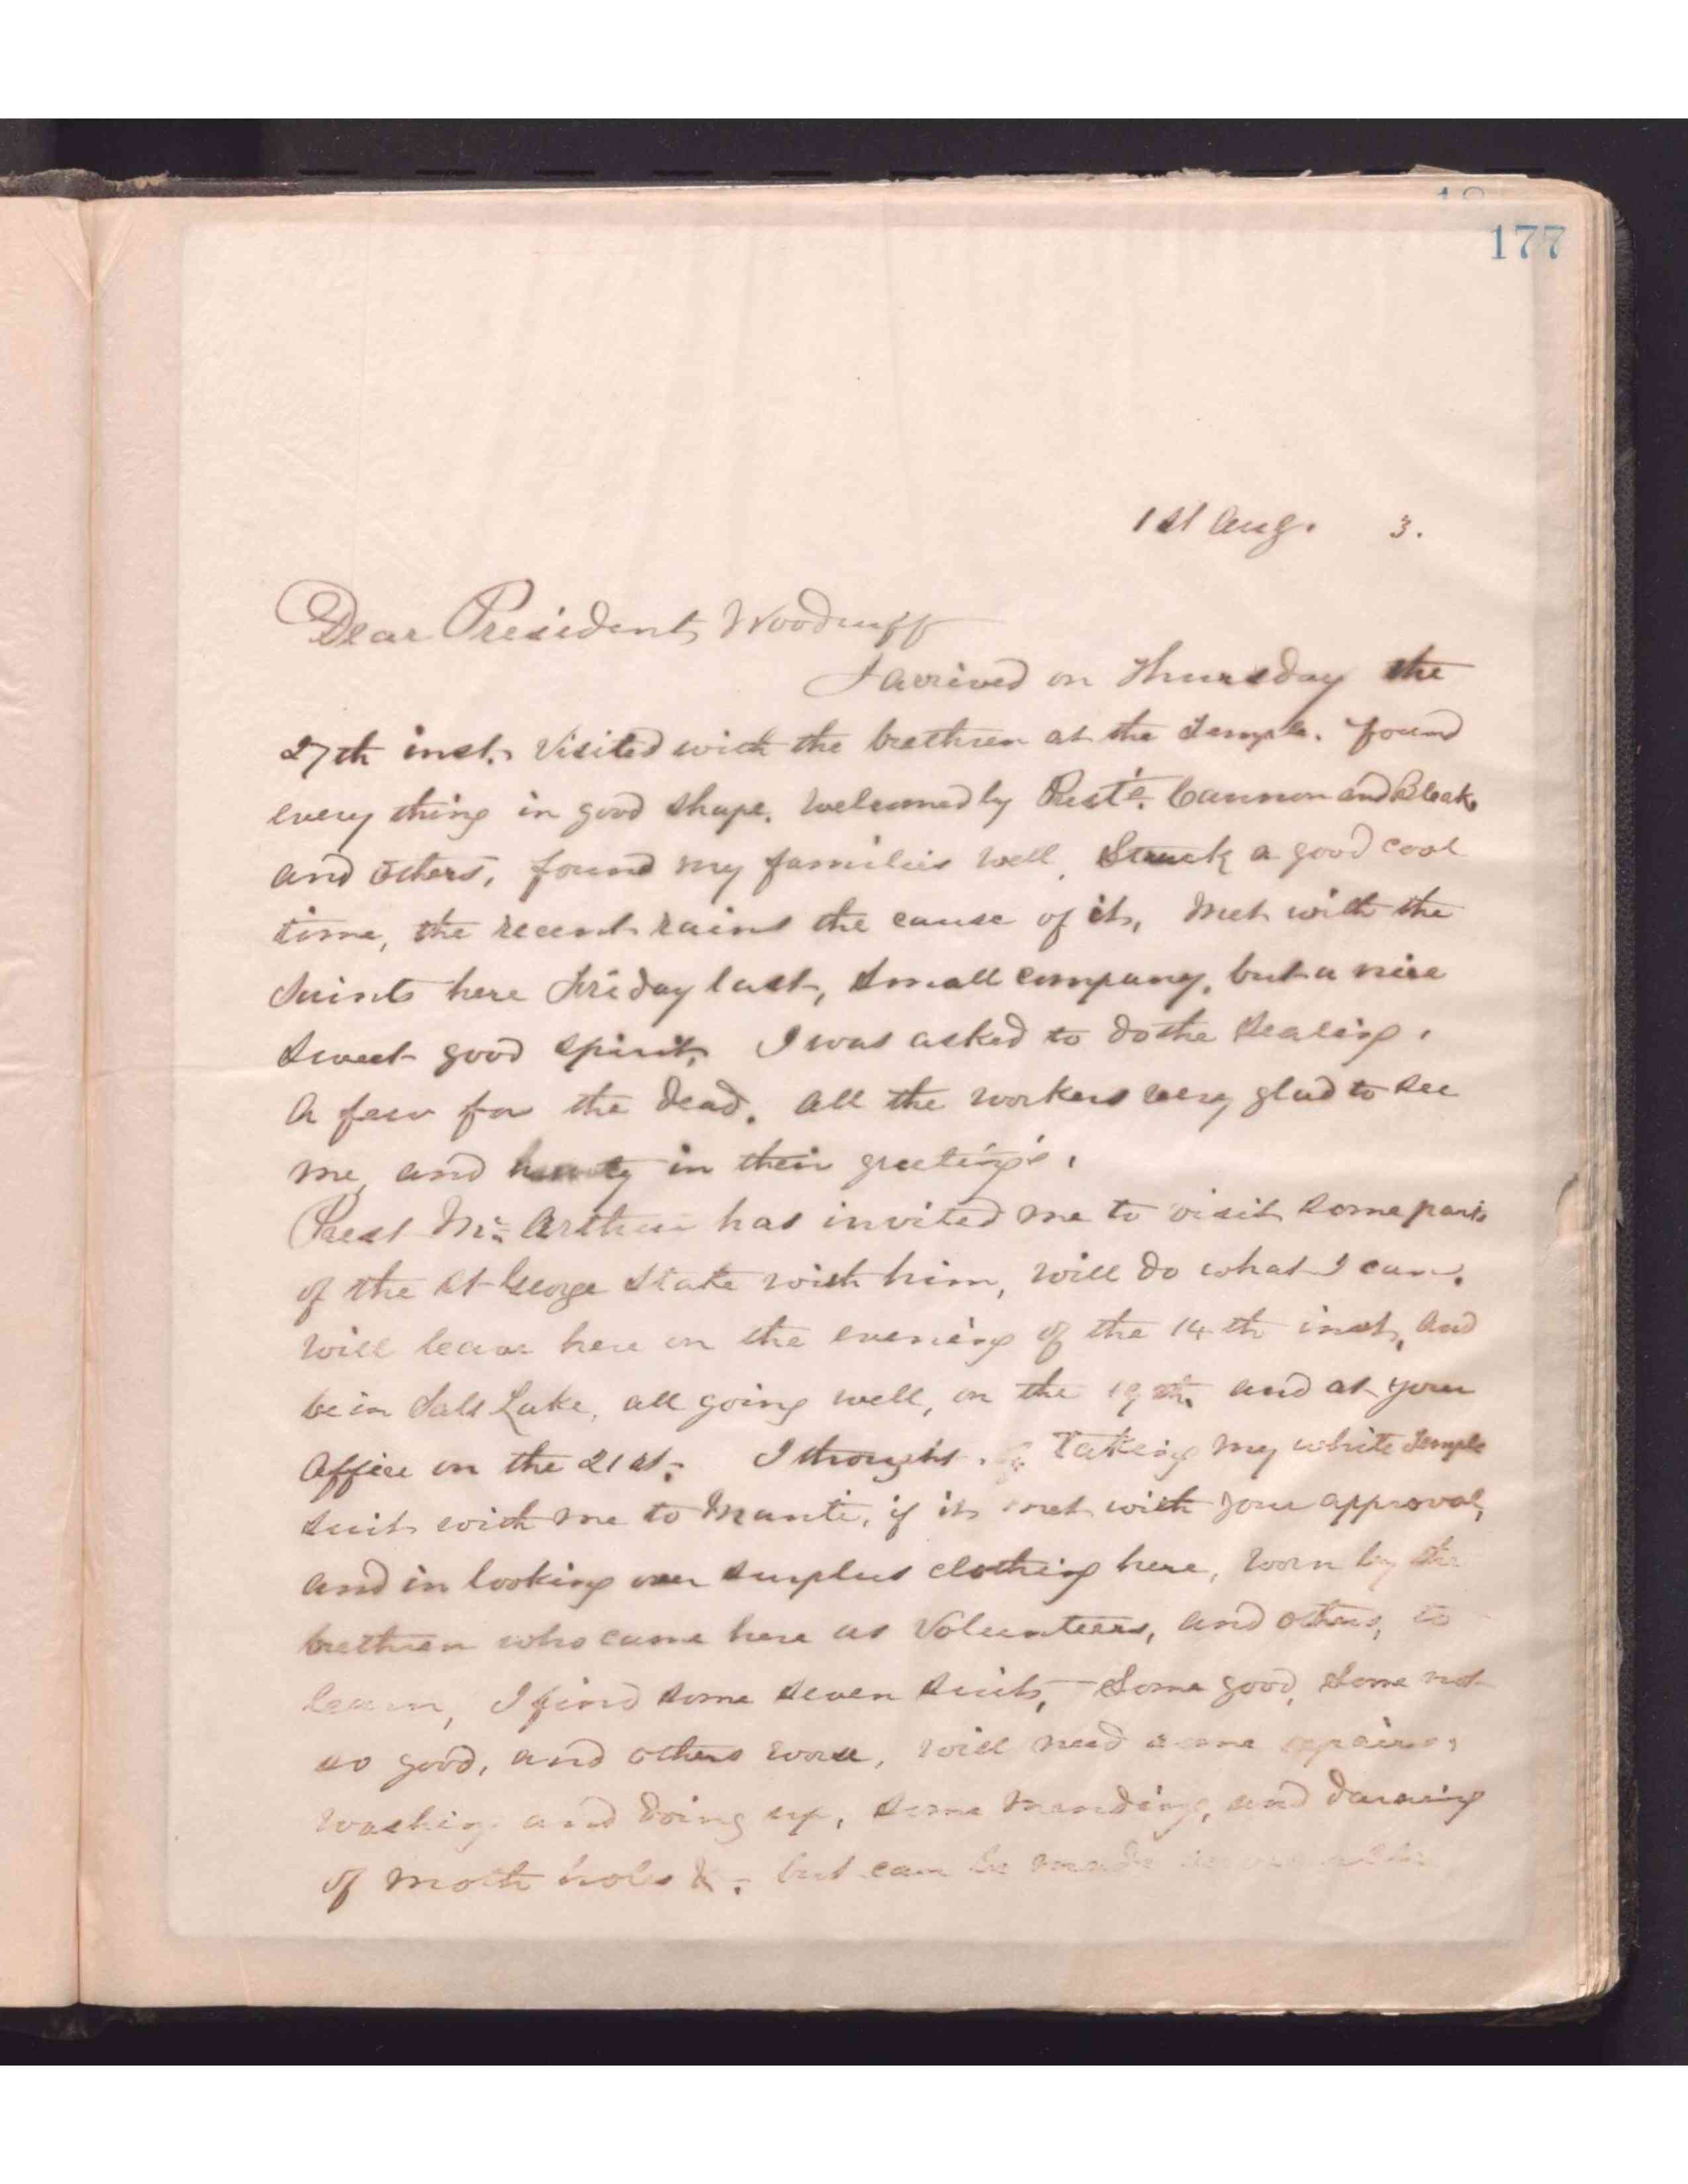 177
1st Aug. 3.
Dear President Woodruff
I arrived on Thursday the
27th inst. Visited with the brethren at the Temple. found
every thing in good shape. Welcomed by Prest's. Cannon and Bleak,
and others, found my families well. Struck a good cool
time, the recent rains the cause of it, Met with the
Saints here Friday last, small company, but a nice
sweet good spirit, I was asked to do the sealing,
a few for the dead. all the workers very glad to see
me, and hearty in their greeting's.
Prest Mc. Arthur has invited me to visit some parts
of the St George Stake with him, will do what I can.
Will leave here on the evening of the 14th inst, and
be in Salt Lake, all going well, on the 19th, and at your
Office on the 21st. I thought of taking my white Temple
suit with me to Manti, if it met with your approval,
and in looking over surplus clothing here, worn by the
brethren who came here as Volunteers, and others, to
learn, I find some seven suits, Some good, Some not
so good, and others worse, will need some repairs,
washing and doing up, some mending, and darning
of moth holes &. but can be made serviceable